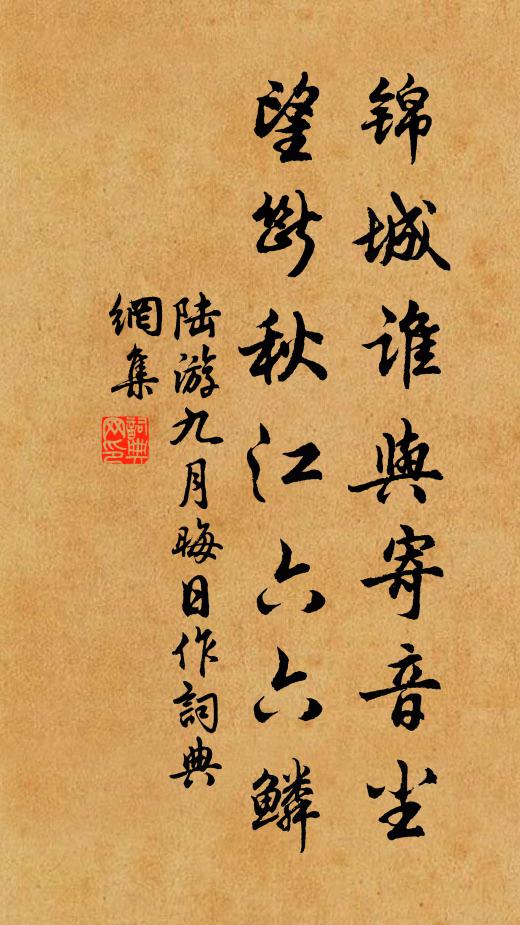 锦城谁与寄音尘
望断秋江六六鳞
陆游九月晦日作詞典
網集
詞典网印